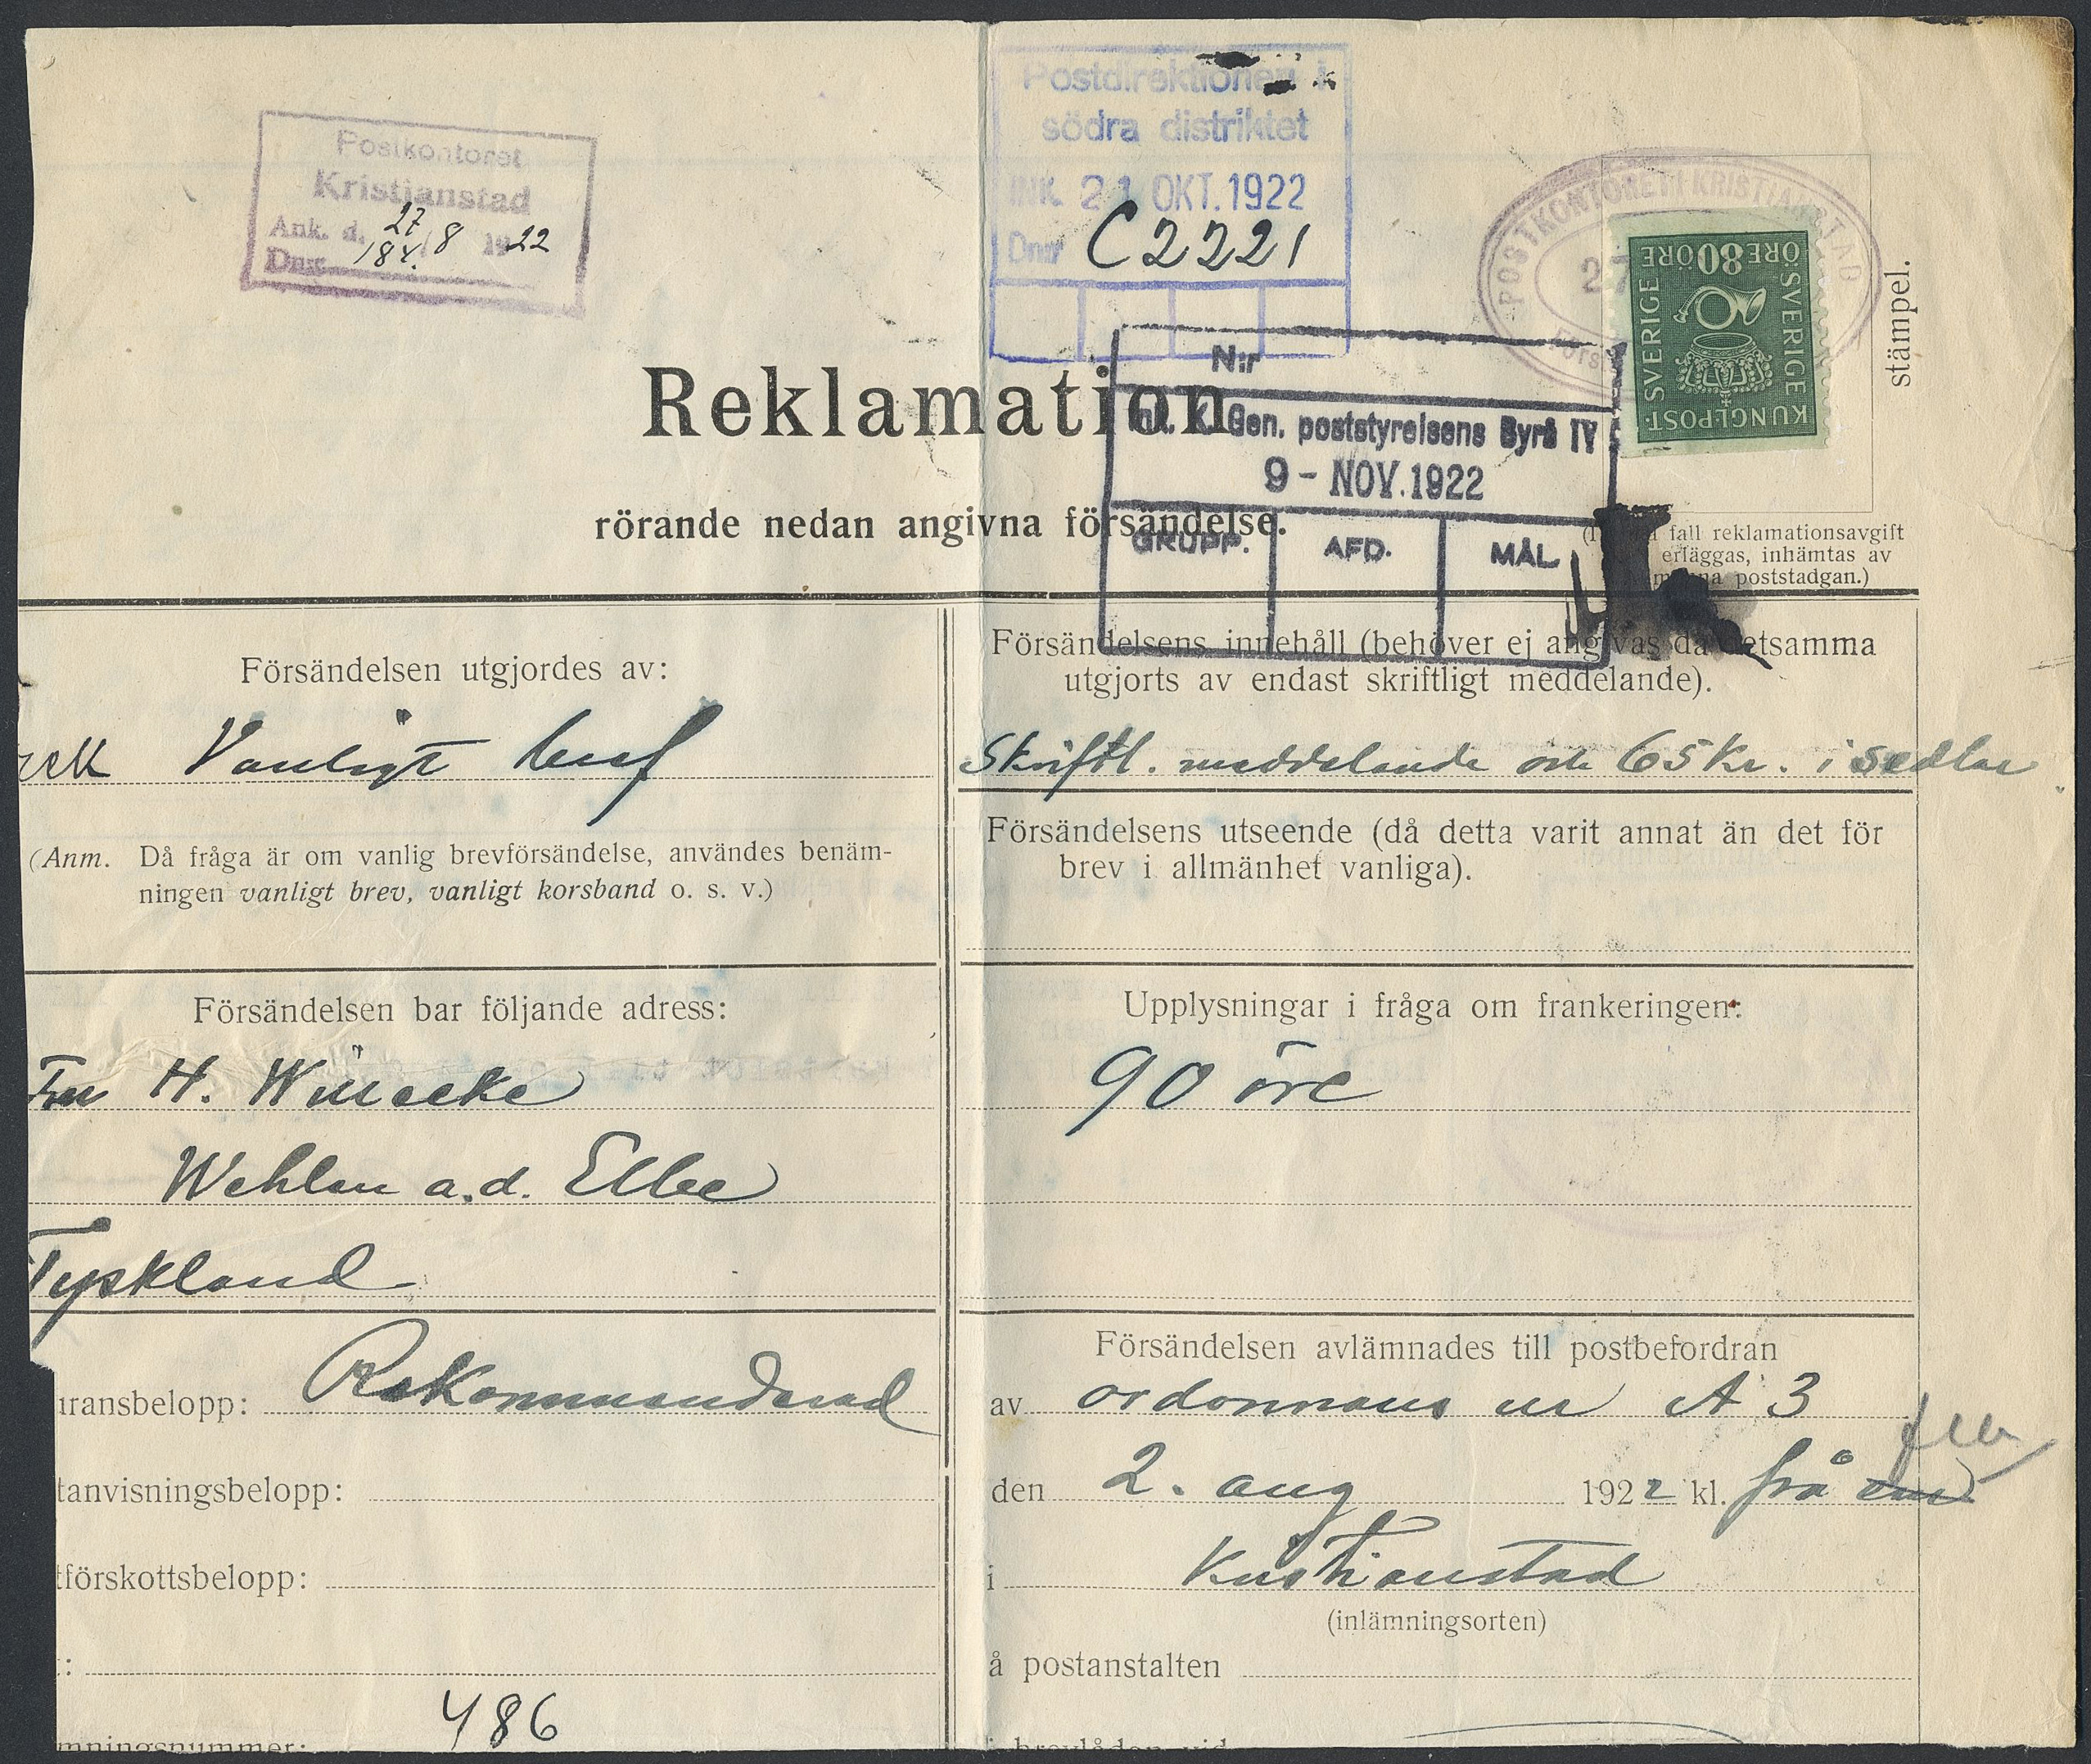 Postkontoret
Kristianstad
Ank. d. 27/8 1922
Dnr 184.
Postdirektionen i
södra distriktet
INK. 21 OKT. 1922
Dnr C 2221
POSTKONTORET I KRISTIANSTAD
SVERIGE SVERIGE
ÖRE 80 ÖRE
KUNGL·POST·
stämpel.
N:r
Gen. poststyrelsens Byrå IV
9 - NOV. 1922
GRUPP. AFD. MÅL
Reklamation
rörande nedan angivna försändelse.
fall reklamationsavgift
erläggas, inhämtas av
poststadgan.)
Försändelsen utgjordes av:
rek Vanligt bref
(Anm. Då fråga är om vanlig brevförsändelse, användes benäm-
ningen vanligt brev, vanligt korsband o. s. v.)
Försändelsen bar följande adress:
Fru H. Winecke
Wehlen a.d. Elbe
Tyskland
uransbelopp: Rekommenderad
tanvisningsbelopp:
tförskottsbelopp:
:
486
mningsnummer:
Försändelsens innehåll (behöver ej angivas då detsamma
utgjorts av endast skriftligt meddelande).
Skriftl. meddelande och 65 Kr. i sedlar
Försändelsens utseende (då detta varit annat än det för
brev i allmänhet vanliga).
Upplysningar i fråga om frankeringen:
90 öre
Försändelsen avlämnades till postbefordran
av ordonnans nr A 3
den 2. aug 1922 kl. frå
i Kristianstad
(inlämningsorten)
å postanstalten
i brevlådan vid